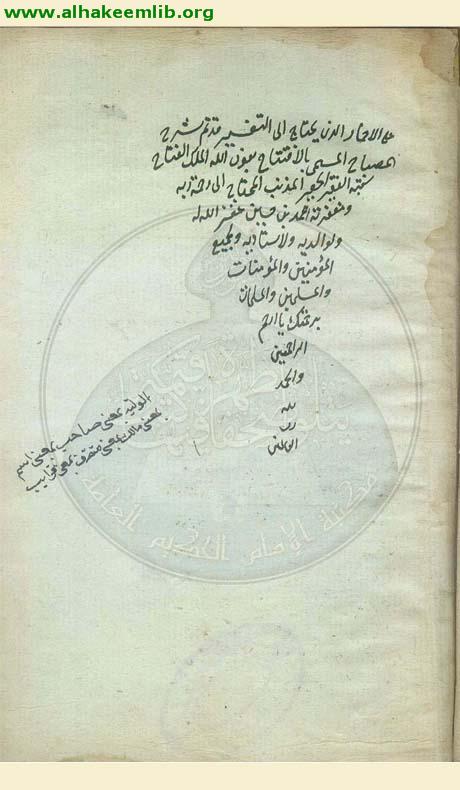 www.alhakeemlib.org
الذى يحتاج الى التفسير قد تم شرح
المصباح المسمى بالافتتاح بعون الله الملك الفتاح
كتبه الفقير الحقير المذنب المحتاج الى رحمة ربه
ومغفرته احمد بن حسين غفر الله له
ولوالديه ولاستاذيه ولجميع
المؤمنين والمؤمنات
والمسلمين والمسلمات
برحمتك يا ارحم
الراحمين
والحمد
لله
رب
العالمين
بمعنى صاحب بمعنى اسم
بمعنى مالك بمعنى متصرف بمعنى
مكتبة الإمام الحكيم العامة